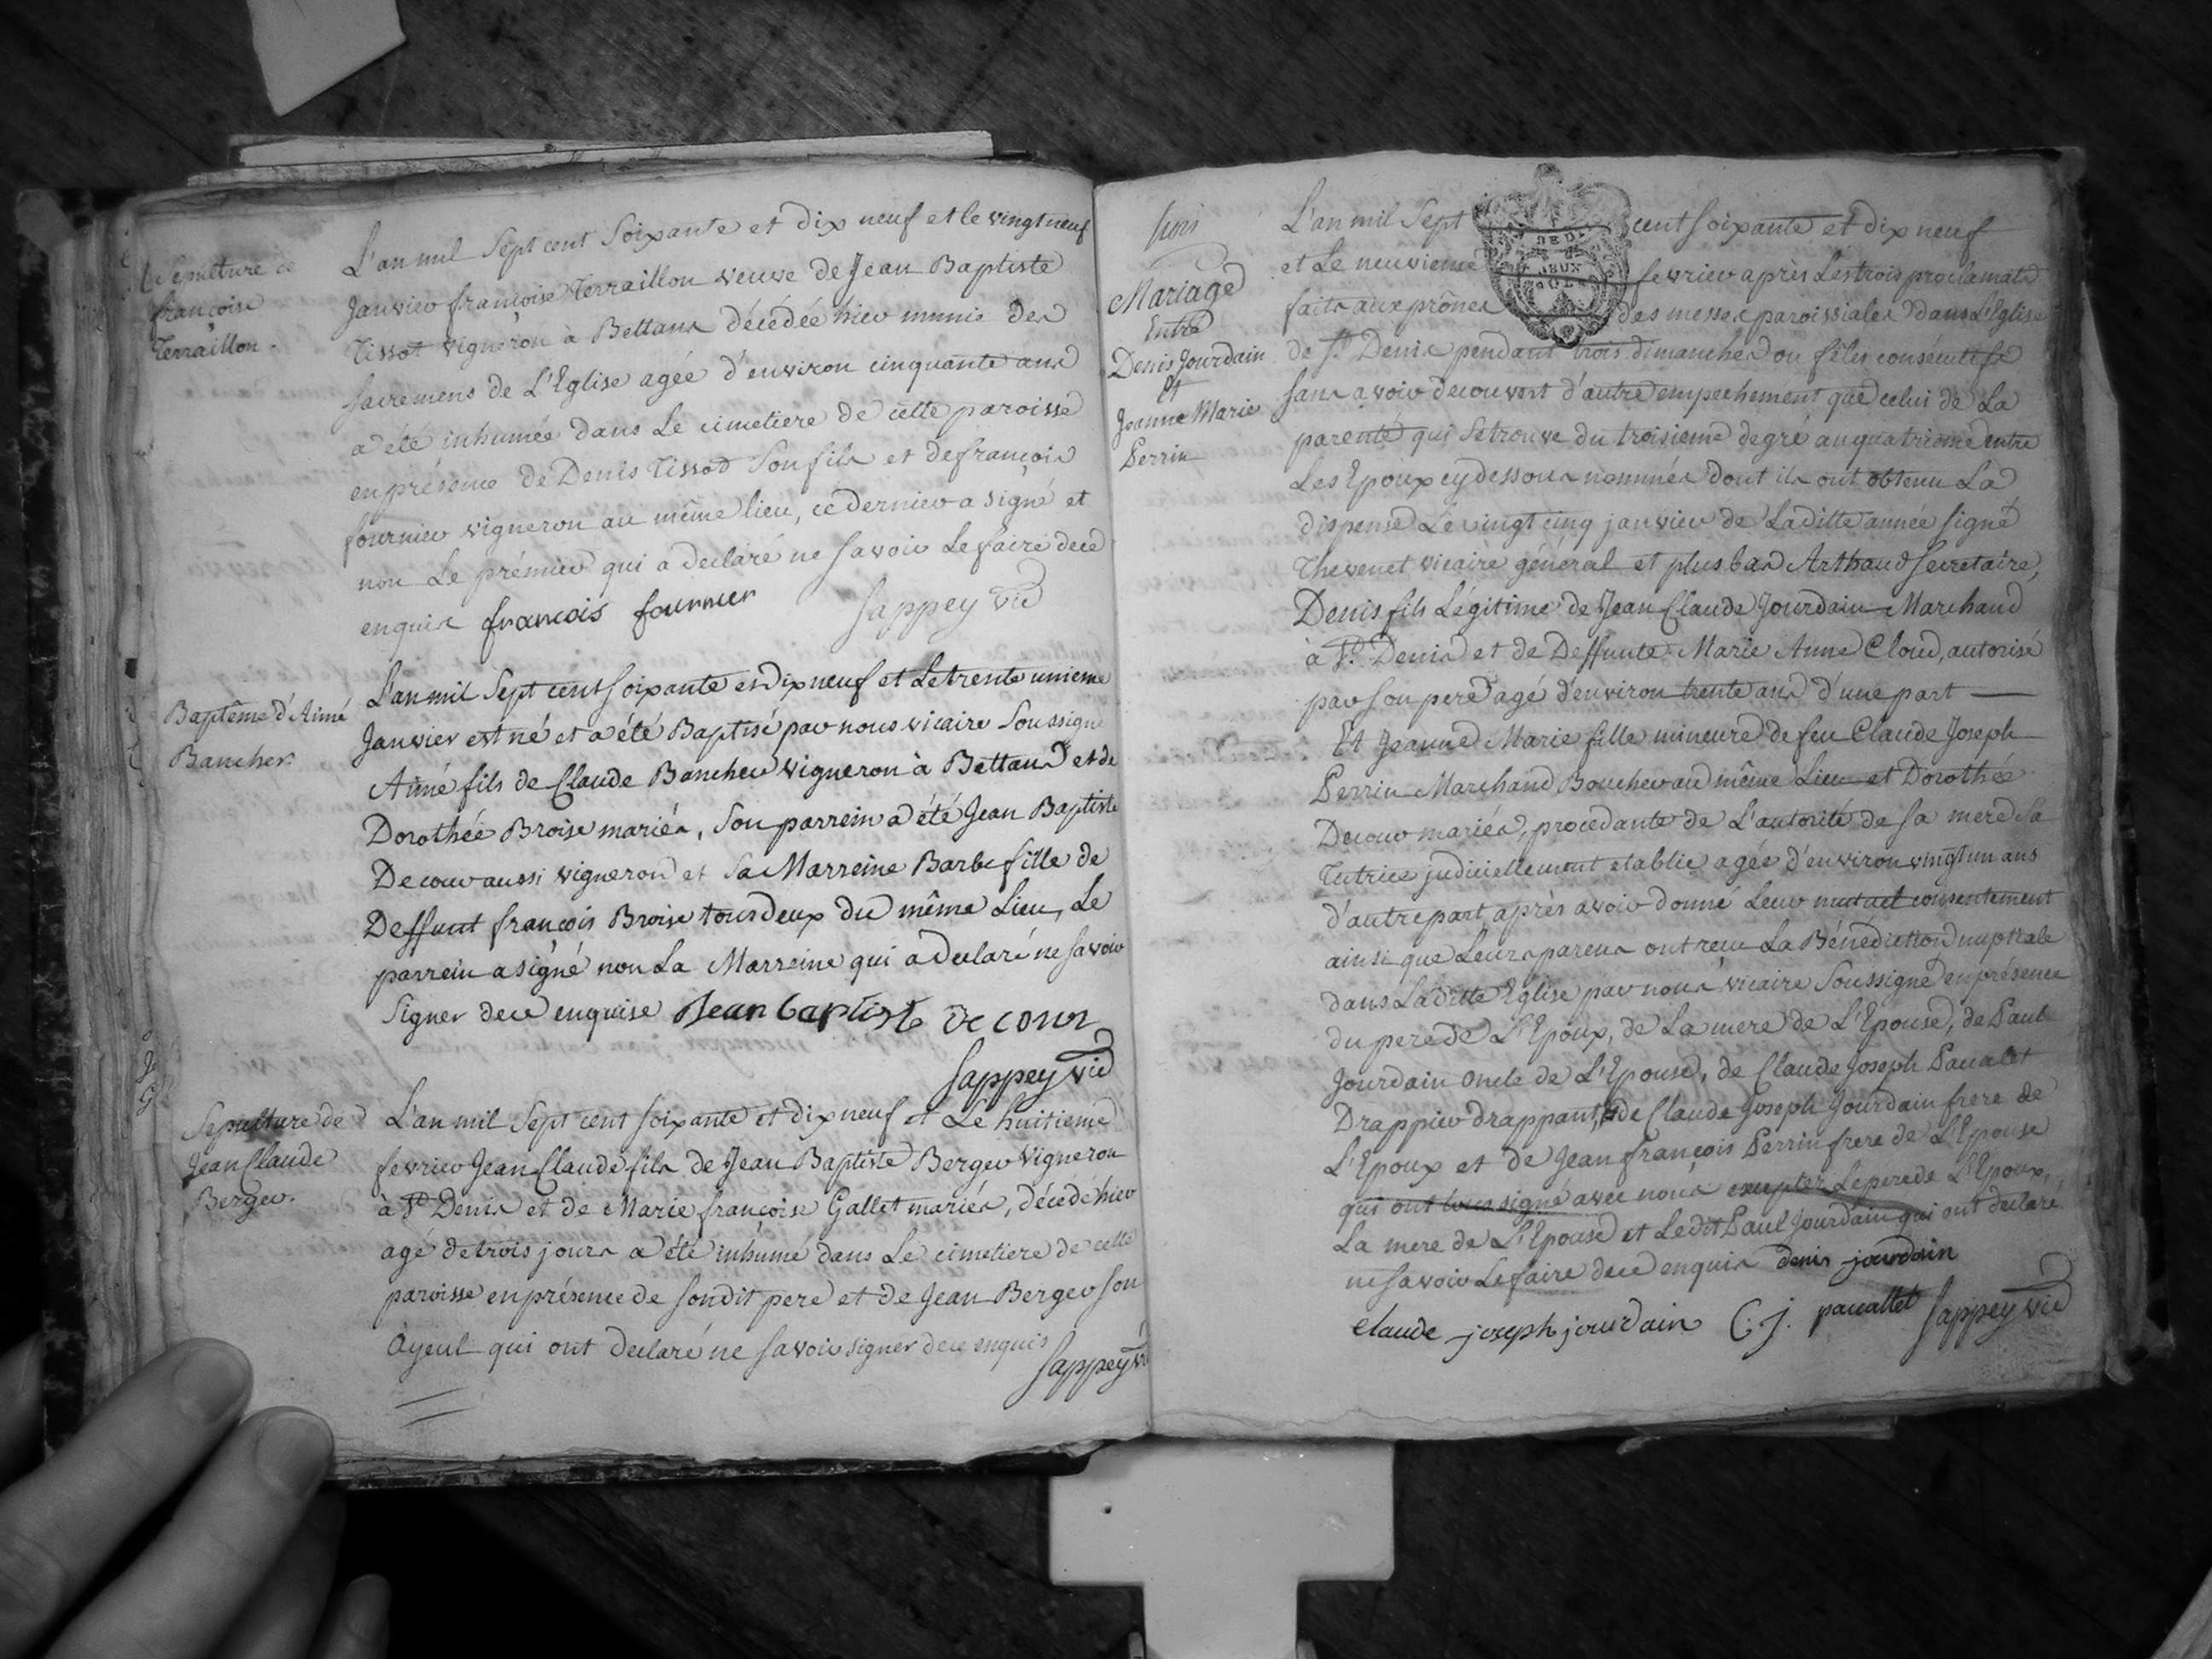 Sepulture de
françoise
Terraillon.
L'an mil Sept cent Soixante et dix neuf et le vingt neuf
Janvier françoise Terraillon veuve de Jean Baptiste
Tissot vigneron à Bettans décédée hier munie des
sacremens de L'Eglise agée d'environ cinquante ans
a été inhumée dans Le cimetiere de cette paroisse
en présence de Denis Tissot Son fils et de françois
fournier vigneron au même lieu, ce dernier a signé et
non Le prémier qui a declaré ne savoir Le faire de ce
enquis françois fournier Sappey vic
Baptême d'Aimé
Bancher.
L'an mil Sept cent soixante et dix neuf et Le trente unieme
Janvier est né et a été Baptisé par nous vicaire Soussigné
Aimé fils de Claude Bancher vigneron à Bettans et de
Dorothée Broise mariés, Son parrein a été Jean Baptiste
Decour aussi vigneron et Sa Marreine Barbe fille de
Deffunt françois Broise tous deux du même Lieu, Le
parrein a signé non La Marreine qui a declaré ne savoir
Signer de ce enquise Jean baptiste de cour
Sappey vic
Sepulture de
Jean Claude
Berger.
L'an mil Sept cent soixante et dix neuf et Le huitieme
fevrier Jean Claude fils de Jean Baptiste Berger vigneron
à St. Denis et de Marie françoise Gallet mariés, décédé hier
agé de trois jours a été inhumé dans Le cimetiere de cette
paroisse en présence de son dit pere et de Jean Berger son
Ayeul qui ont declaré ne savoir signer de ce enquis
Sappey vi
trois
Mariage
Entre
Denis Jourdain
et
Jeanne Marie
Perrin
L'an mil Sept cent soixante et dix neuf
et Le neuvieme fevrier après Les trois proclamats
faits aux prônes des messes paroissiales dans L'Eglise
de St. Denis pendant trois dimanches ou fêtes consécutifs
sans avoir decouvert d'autre empechement que celui de La
parenté qui se trouve du troisieme degré au quatrieme entre
Les Epoux cy dessous nommés dont ils ont obtenu La
dispense Le vingt cinq janvier de Laditte année signé
Thevenet vicaire général et plus bas Arthaud secretaire,
Denis fils Légitime de Jean Claude Jourdain Marchand
à St. Denis et de Deffunte Marie Anne Cloud, autorisé
par son pere agé d'environ trente ans d'une part
Et Jeanne Marie fille mineure de feu Claude Joseph
Perrin Marchand Boucher au même Lieu et Dorothée
Decour mariés, procedante de L'autorité de sa mere sa
Tutrice judiciellement etablie agée d'environ vingt un ans
d'autre part, après avoir donné Leur mutuel consentement
ainsi que Leurs parens ont reçu La Bénédiction nuptiale
dans Laditte Eglise par nous vicaire Soussigné en présence
du pere de L'Epoux, de La mere de L'Epouse, de Paul
Jourdain oncle de L'Epouse, de Claude Joseph Paucalet
Drappier drappant, de Claude Joseph Jourdain frere de
L'Epoux et de Jean françois Perrin frere de L'Epouse
qui ont tous signé avec nous excepter Le pere de L'Epoux,
La mere de L'Epouse et Le dit Paul Jourdain qui ont declaré
ne savoir Le faire de ce enquis denis jourdain
claude joseph jourdain C. j. paucallet Sappey vic